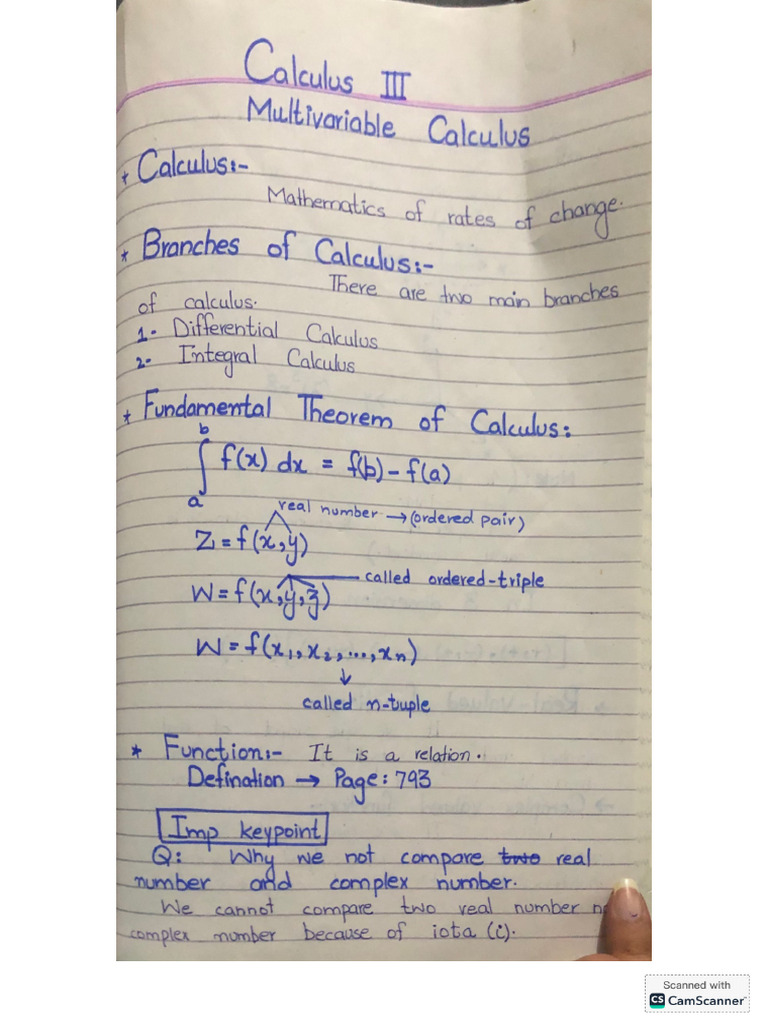 Calculus III
Multivariable Calculus
* Calculus:-
Mathematics of rates of change.
* Branches of Calculus:-
There are two main branches
of calculus.
1- Differential Calculus
2- Integral Calculus
* Fundamental Theorem of Calculus:
∫ₐᵇ f(x) dx = f(b) - f(a)
real number → (ordered pair)
Z = f(x,y)
called ordered-triple
W = f(x,y,z)
W = f(x₁, x₂, ..., xₙ)
↓
called n-tuple
* Function:- It is a relation.
Defination → Page: 793
Imp keypoint
Q: Why we not compare ~~two~~ real
number and complex number.
We cannot compare two real number
complex number because of iota (i).
Scanned with
CS CamScanner